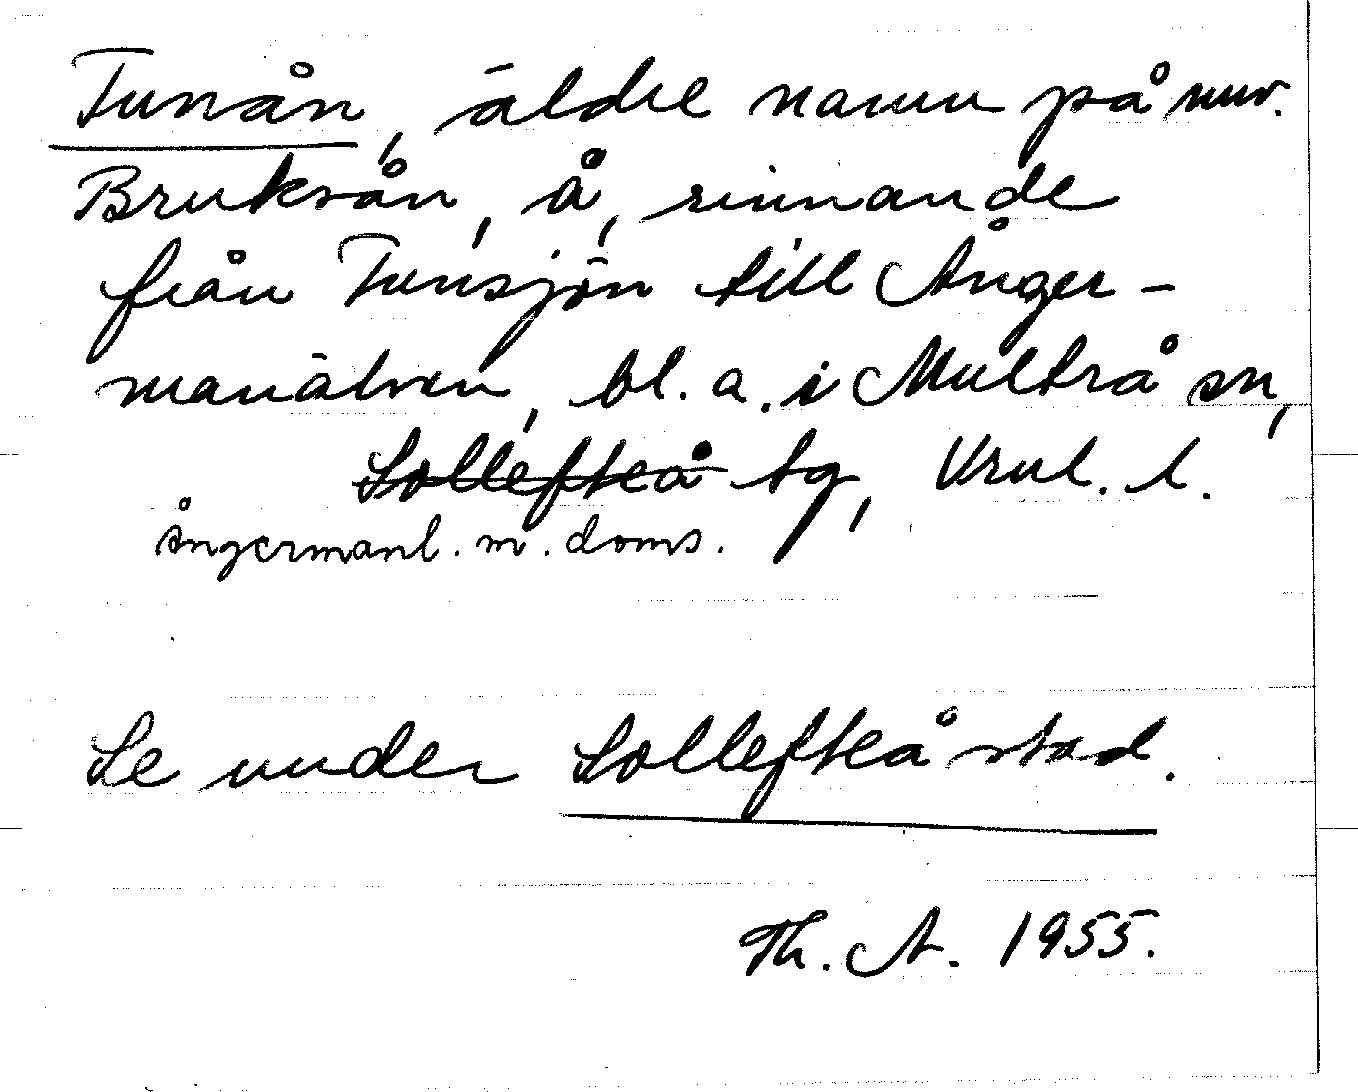 Tunån, äldre namn på nuv.
Bruksån, å, rinnande
från Tunsjön till Ånger-
manälven, bl. a. i Multrå sn,
Sollefteå tg, Vrnl. l.
Ångermanl. m. doms.
Se under Sollefteå stad.
Th. A. 1955.